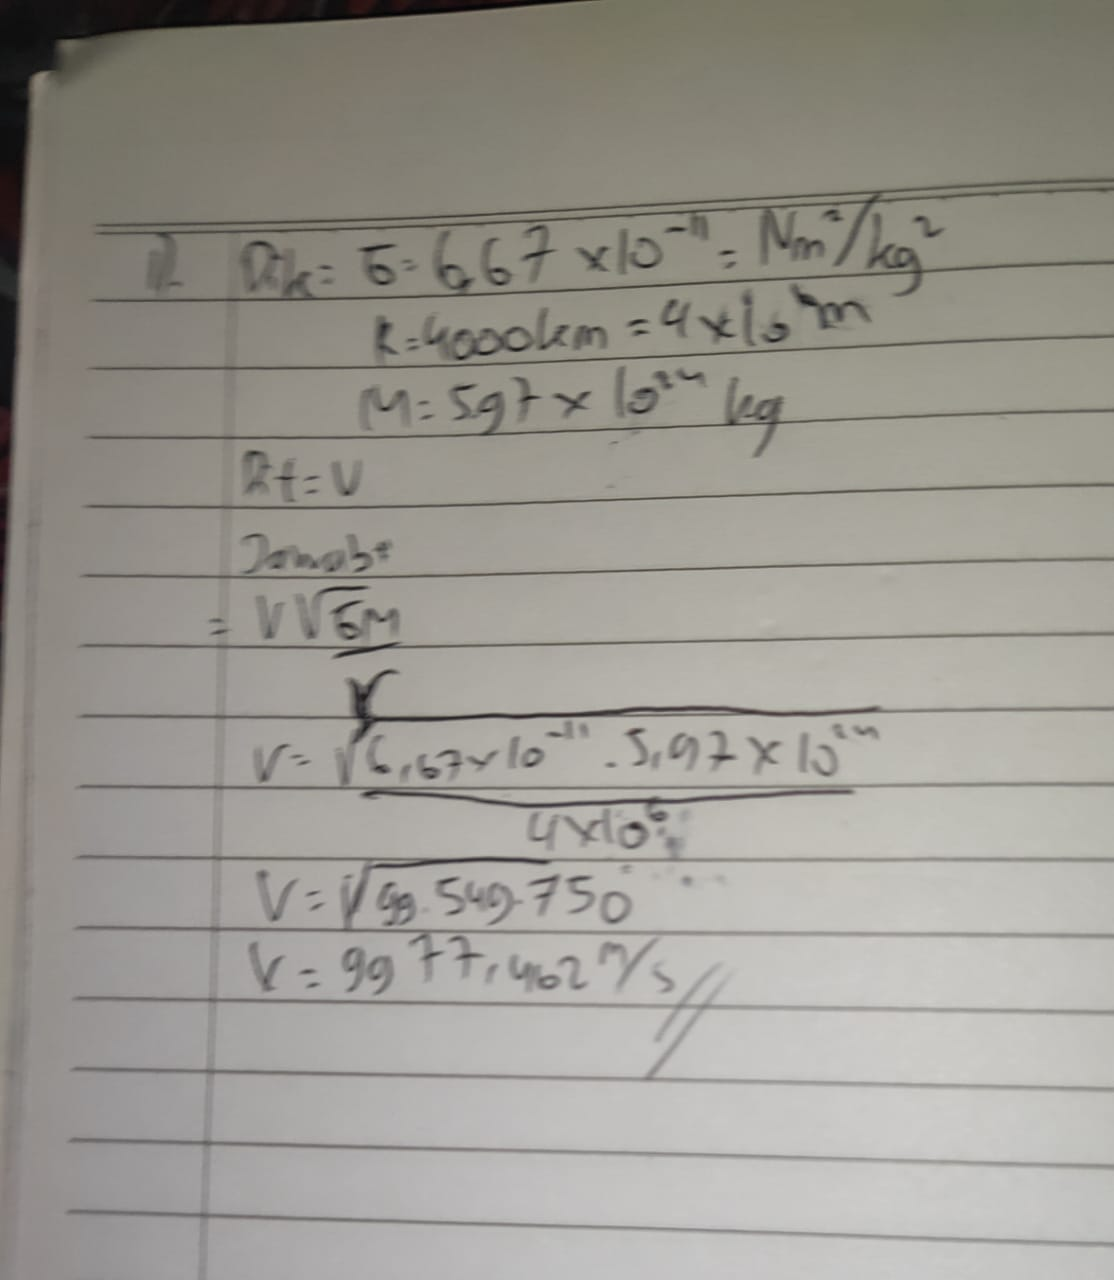 Dik = G = 6,67 x10⁻¹¹ = Nm²/kg²
R = 4000km = 4x10⁶m
M = 5,97 x 10²⁴ kg
Dt = V
Jawab:
= V√GM
r
V = √6,67x10⁻¹¹ . 5,97 x 10²⁴
4x10⁶
V = √99.549.750
V = 9977,462 m/s //